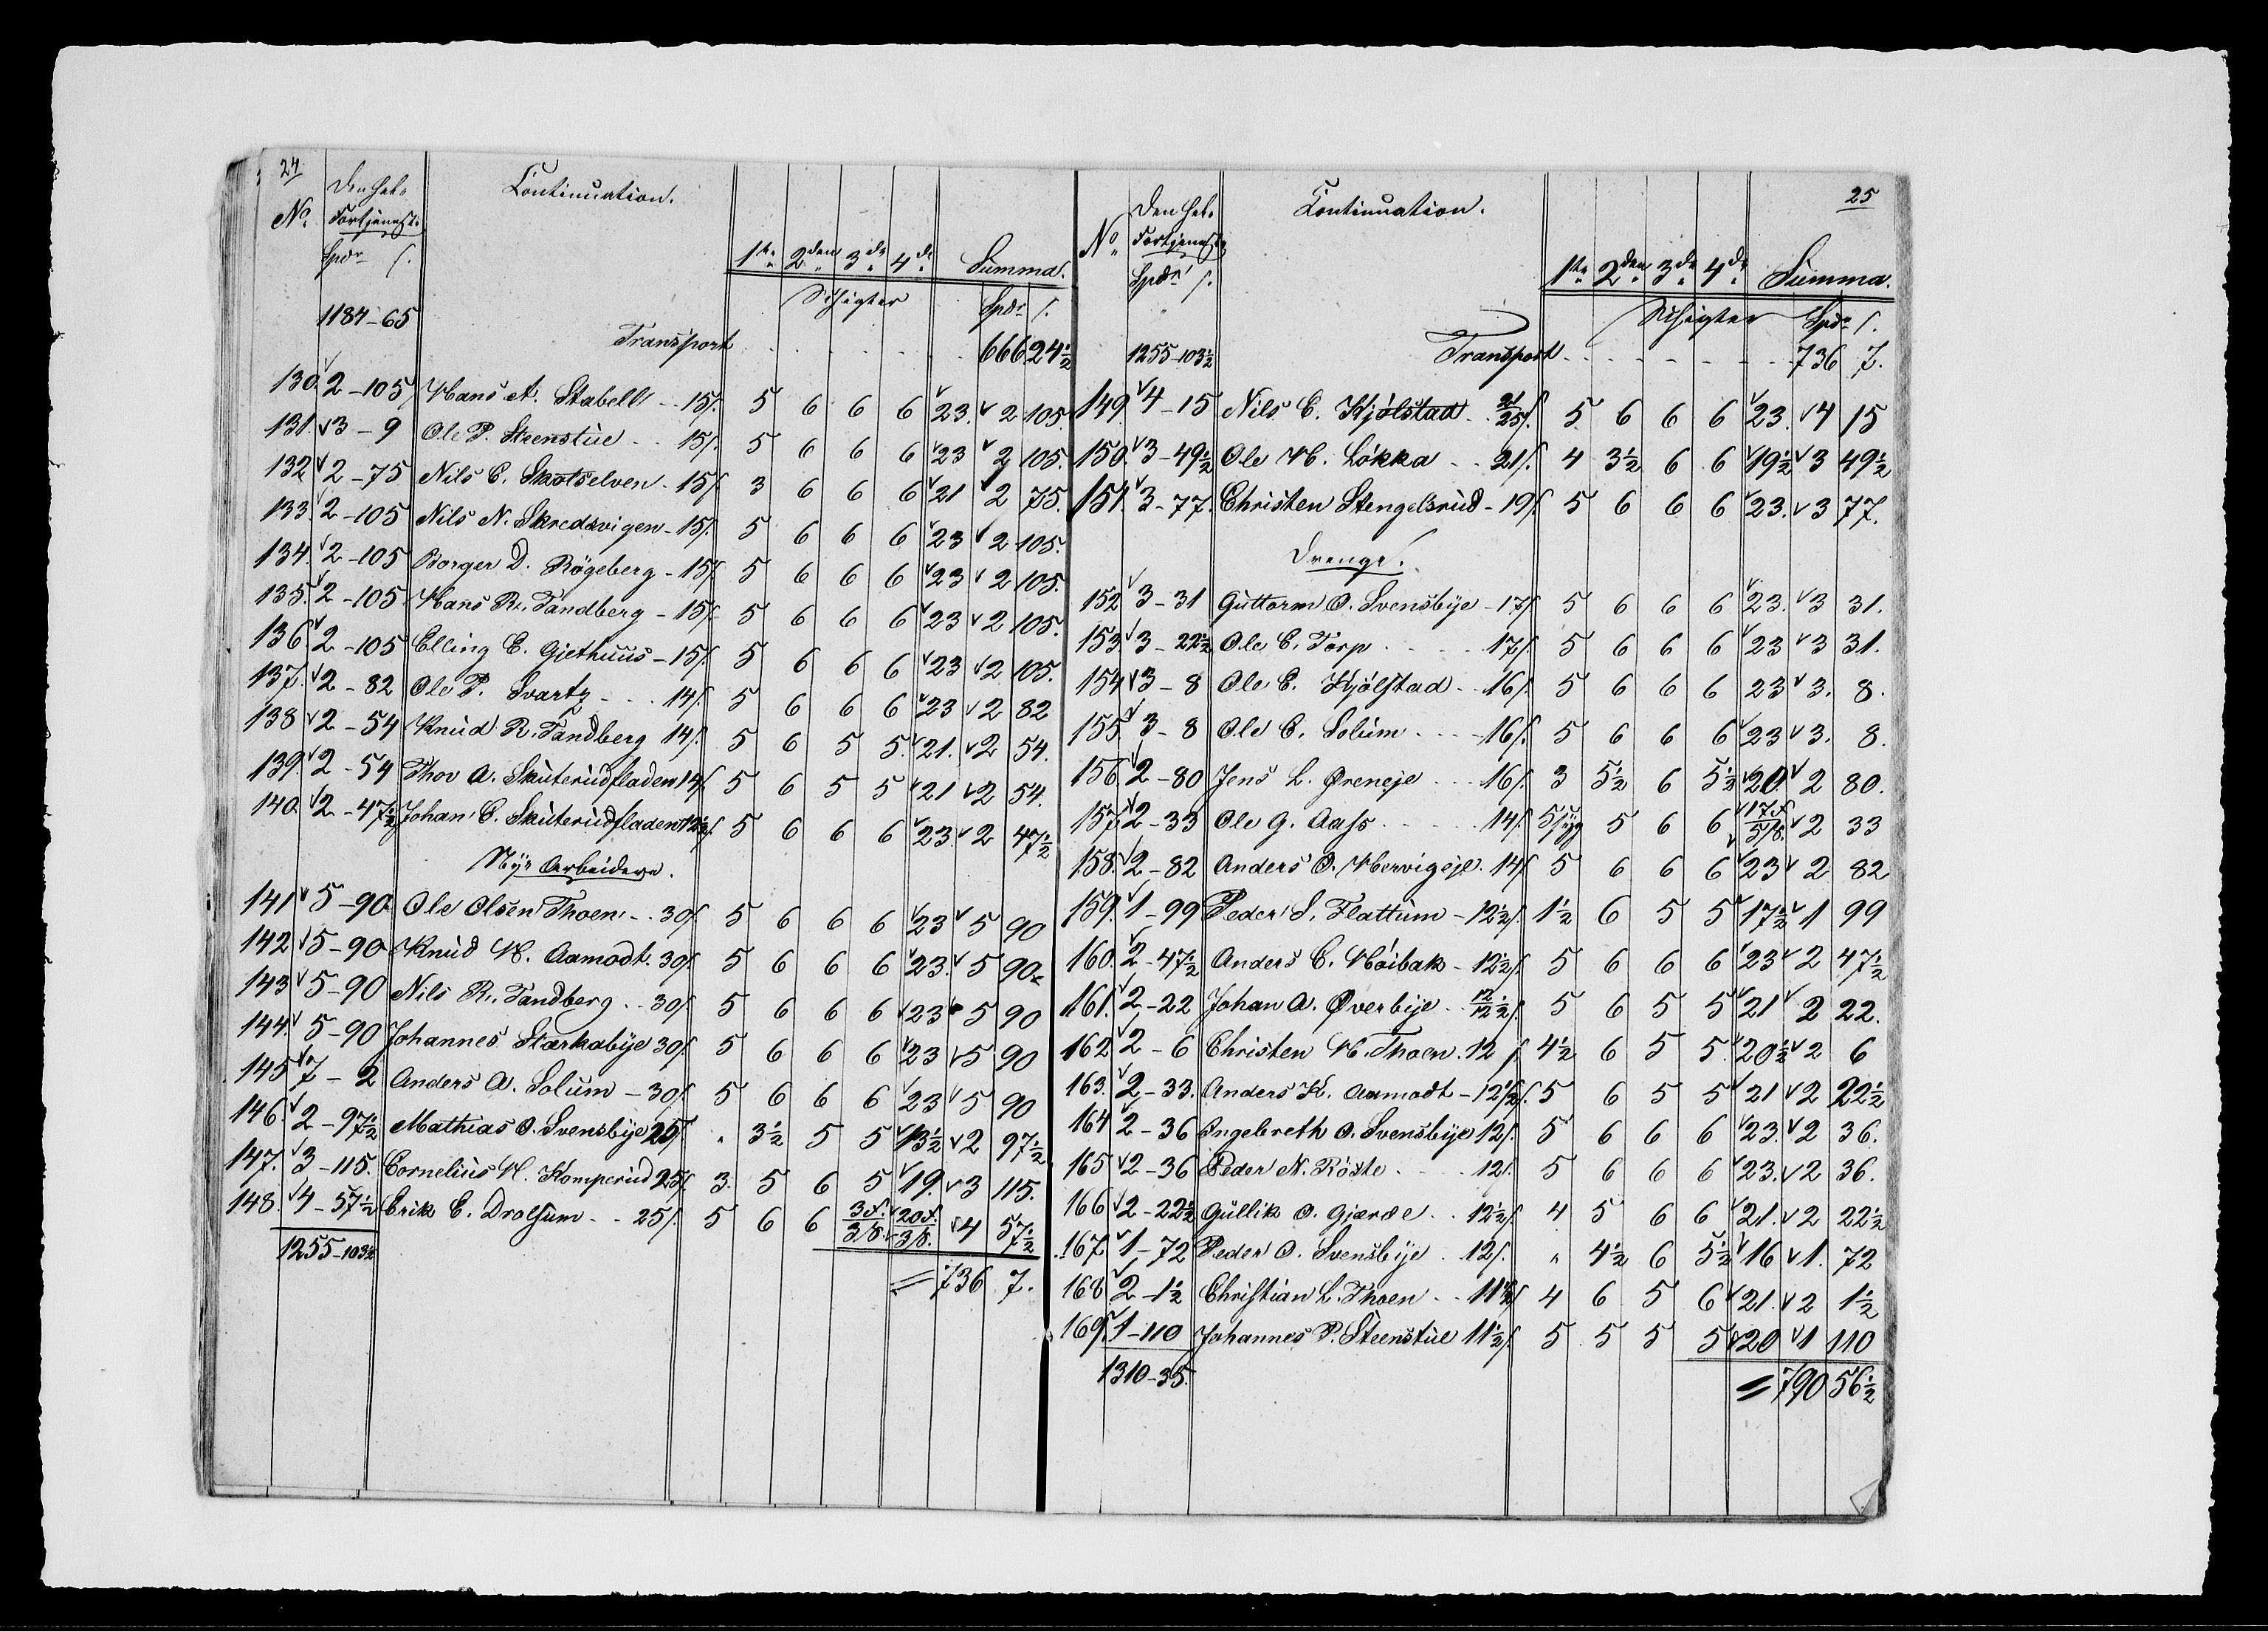 24
Den hel.
Fortjeneste
Continuation.
No.
Spdr ſ.
1ste 2den 3de 4de Summa.
Schigter Spdr ſ.
1184-65
Transport 666 24½
130. 2-105 Hans A. Stabell - 15ſ. 5 6 6 6 23. 2 105
131. 3-9 Ole P. Steenstue - 15ſ. 5 6 6 6 23 2 105.
132 2-75 Nils C. Skotselven - 15ſ 3 6 6 6 21 2 75.
133. 2-105 Nils N. Skredsvigen - 15ſ. 5 6 6 6 23 2 105.
134. 2-105 Borger D. Rögeberg - 15ſ 5 6 6 6 23 2 105.
135. 2-105 Hans R. Tandberg - 15ſ. 5 6 6 6 23 2 105.
136 2-105 Elling E. Gjethuus - 15ſ. 5 6 6 6 23 2 105.
137. 2-82 Ole P. Svartz - 14ſ. 5 6 6 6 23 2 82
138 2-54 Knud R. Tandberg 14ſ. 5 6 5 5. 21. 2 54.
139. 2-54 Thov A. Skuterudfladen 14ſ. 5 6 5 5 21 2 54.
140. 2-47½ Johan C. Skuterudfladen 12½ſ. 5 6 6 6 23. 2 47½
Nye Arbeidere.
141 5-90 Ole Olsen Thoen - 30ſ. 5 6 6 6 23 5 90
142 5-90 Knud H. Aamodt. 30ſ. 5 6 6 6 23. 5 90
143 5-90 Nils R. Tandberg - 30ſ. 5 6 6 6 23 5 90
144. 5-90 Johannes Stærkabye 30ſ. 5 6 6 6 23 5 90
145 7-2 Anders A. Solum - 30ſ. 5 6 6 6 23 5 90
146. 2-97½ Mathias O. Svensbye 25ſ " 3½ 5 5 13½ 2 97½
147. 3-115. Cornelius H. Komperud 25ſ. 3. 5 6 5 19. 3 115.
148. 4-57½ Erik E. Drolsum - 25ſ. 5 6 6 3f. 3/8. 20f. 3/8. 4 57½
1255-103½
= 736 7.
25
Den hel.
Fortjeneste
Continuation.
No.
Spdr ſ.
1ste 2den 3de 4de Summa.
Schigter Spdr ſ.
1255-103½ Transport 736 7.
149. 4-15 Nils C. Kjölstad 21/25ſ. 5 6 6 6 23. 4 15
150. 3-49½ Ole H. Lökka - 21ſ. 4 3½ 6 6 19½ 3 49½
151. 3-77. Christen Stengelsrud - 19ſ. 5 6 6 6 23. 3 77.
Drenge.
152 3-31 Guttorm O. Svensbye - 17ſ 5 6 6 6 23. 3 31.
153 3-22½ Ole E. Torp - 17ſ. 5 6 6 6 23 3 31.
154 3-8 Ole E. Kjölstad - 16ſ. 5 6 6 6 23 3. 8.
155 3-8 Ole C. Solum - 16ſ. 5 6 6 6 23 3. 8.
156. 2-80 Jens L. Øreneje - 16ſ. 3 5½ 6 5½ 20. 2 80.
157 2-33 Ole G. Aass - 14ſ. 5 6 6 17f. 5/8. 2 33
158. 2-82 Anders O. Hervigeje. 14ſ 5 6 6 6 23 2 82
159. 1-99 Peder S. Flattum - 12½ſ. 1½ 6 5 5 17½ 1 99
160. 2-47½ Anders C. Höibak - 12½ſ. 5 6 6 6 23 2 47½
161. 2-22 Johan A. Øverbye 12/12½ſ. 5 6 5 5 21 2 22.
162 2-6 Christen H. Thoen. 12ſ. 4½ 6 5 5. 20½ 2 6
163. 2-33. Anders K. Aamodt - 12½ſ. 5 6 5 5 21 2 22½
164 2-36 Ingebreth O. Svensbye 12ſ. 5 6 6 6 23. 2 36.
165 2-36 Peder N. Röste - 12ſ. 5 6 6 6 23. 2 36.
166 2-22½ Gullik O. Gjærde - 12½ſ 4 5 6 6 21. 2 22½
167 1-72 Peder O. Svensbye. 12ſ. " 4½ 6 5½ 16 1. 72
168 2-1½ Christian L. Thoen - 11½ſ 4 6 5 6 21. 2 1½
169 1-110 Johannes P. Steenstue 11½ſ. 5 5 5 5 20 1 110
1310-35.
= 790 56½